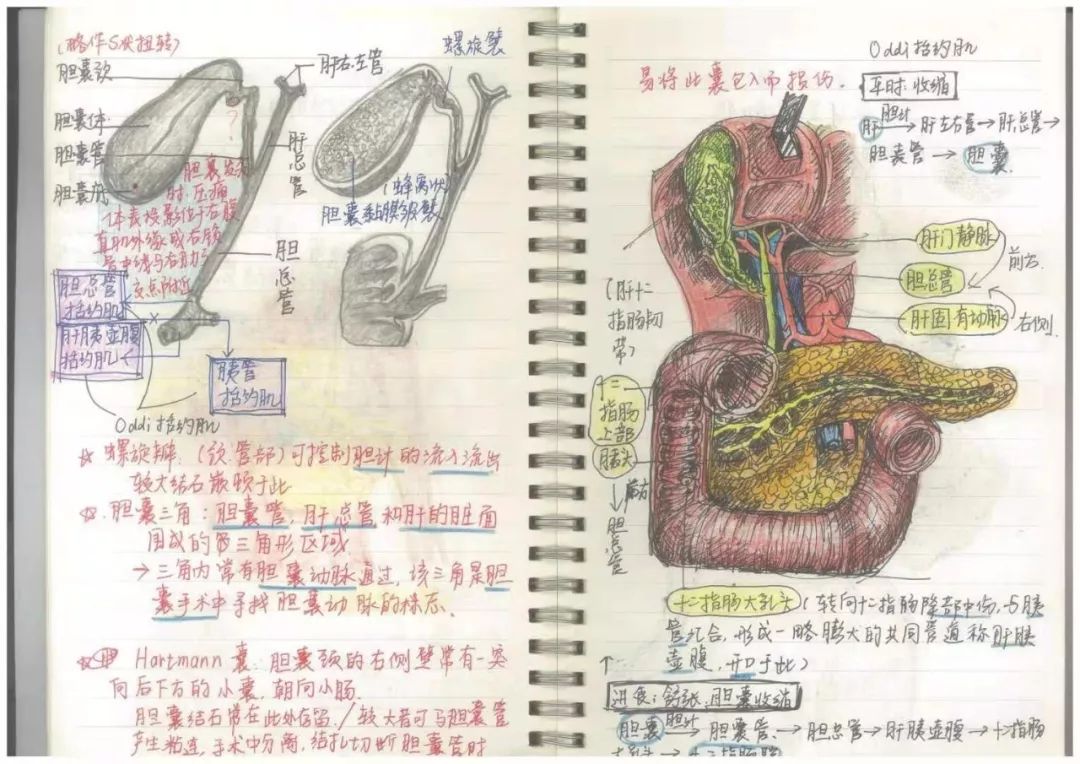 (略作S状扭转)
胆囊颈
胆囊体
胆囊管
胆囊底
肝右左管
螺旋襞
肝总管
?
胆囊发炎
时.压痛
体表投影位于右腹
直肌外缘或右锁
骨中线与右肋弓
交点附近
(蜂窝状)
胆囊黏膜皱襞
胆总管
胆总管
括约肌
肝胰壶腹
括约肌
胰管
括约肌
Oddi括约肌
☆ 螺旋瓣.(颈管部)可控制胆汁的流入流出
较大结石嵌顿于此
☆.胆囊三角:胆囊管,肝总管和肝的脏面
围成的 三角形区域.
→三角内常有胆囊动脉通过,该三角是胆
囊手术中寻找胆囊动脉的标志.
Hartmann囊:胆囊颈的右侧壁常有一突
向后下方的小囊,朝向小肠.
胆囊结石常在此处存留./较大者可与胆囊管
产生粘连,手术中分离,结扎切断胆囊管时
易将此囊包入而损伤.
Oddi括约肌
平时:收缩
肝 胆汁→肝左右管→肝总管→
胆囊管→胆囊
肝门静脉
前方
胆总管
肝固有动脉
右侧
(肝十二
指肠韧
带)
十二
指肠
上部
胰头
前方
↓
胆总管
十二指肠大乳头(转向十二指肠降部中份,与胰
管汇合,形成一略膨大的共同管道称肝胰
壶腹,开口于此)
↑
进食:舒张.胆囊收缩
胆囊 胆汁→胆囊管→胆总管→肝胰壶腹→十二指肠
大乳头→十二指肠腔